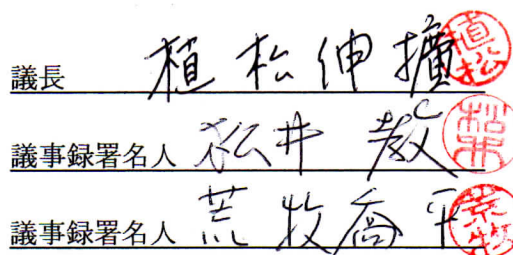 議長 植松伸擴 植松
議事録署名人 松井 教 松井
議事録署名人 荒牧喬平 荒牧